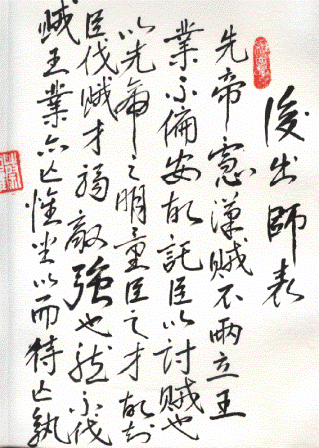 後出師表
先帝慮漢賊不兩立王
業不偏安故託臣以討賊也
以先帝之明量臣之才故知
臣伐賊才弱敵強也然不伐
賊王業亦亡惟坐以而待亡孰